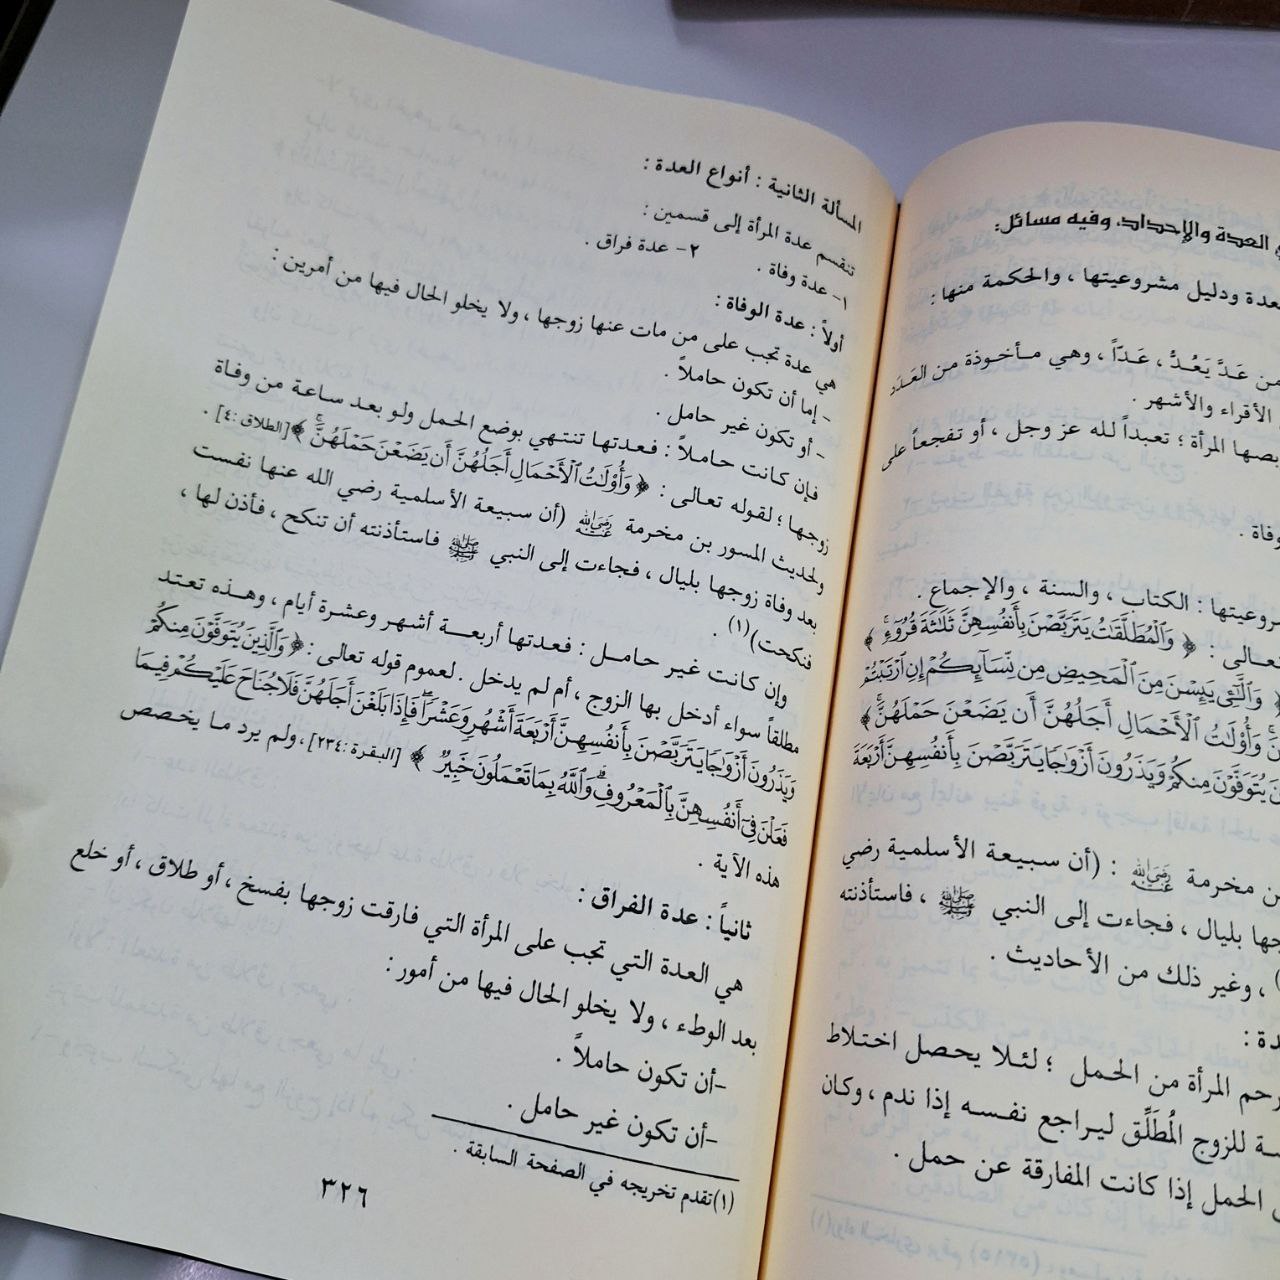 العدة والإحداد، وفيه مسائل:
ودليل مشروعيتها ، والحكمة منها :
من عَدَّ يَعُدُّ ، عَدّاً ، وهي مأخوذة من العَدَد
الأقراء والأشهر .
المرأة ؛ تعبداً لله عز وجل ، أو تفجعاً على
الكتاب ، والسنة ، والإجماع .
﴿ وَٱلْمُطَلَّقَٰتُ يَتَرَبَّصْنَ بِأَنفُسِهِنَّ ثَلَٰثَةَ قُرُوٓءٍ ﴾
﴿ وَٱلَّٰٓـِٔى يَئِسْنَ مِنَ ٱلْمَحِيضِ مِن نِّسَآئِكُمْ إِنِ ٱرْتَبْتُمْ
وَأُو۟لَٰتُ ٱلْأَحْمَالِ أَجَلُهُنَّ أَن يَضَعْنَ حَمْلَهُنَّ ﴾
يُتَوَفَّوْنَ مِنكُمْ وَيَذَرُونَ أَزْوَٰجًا يَتَرَبَّصْنَ بِأَنفُسِهِنَّ أَرْبَعَةَ
مخرمة رضي الله عنه : (أن سبيعة الأسلمية رضي
بليال ، فجاءت إلى النبي ﷺ ، فاستأذنته
، وغير ذلك من الأحاديث .
رحم المرأة من الحمل ؛ لئلا يحصل اختلاط
للزوج المُطَلِّق ليراجع نفسه إذا ندم ، وكان
الحمل إذا كانت المفارقة عن حمل .
المسألة الثانية : أنواع العدة :
تنقسم عدة المرأة إلى قسمين :
١- عدة وفاة . ٢- عدة فراق .
أولاً : عدة الوفاة :
هي عدة تجب على من مات عنها زوجها ، ولا يخلو الحال فيها من أمرين :
- إما أن تكون حاملاً .
- أو تكون غير حامل .
فإن كانت حاملاً : فعدتها تنتهي بوضع الحمل ولو بعد ساعة من وفاة
زوجها ؛ لقوله تعالى : ﴿ وَأُو۟لَٰتُ ٱلْأَحْمَالِ أَجَلُهُنَّ أَن يَضَعْنَ حَمْلَهُنَّ ﴾ [الطلاق :٤] .
ولحديث المسور بن مخرمة رضي الله عنه (أن سبيعة الأسلمية رضي الله عنها نفست
بعد وفاة زوجها بليال ، فجاءت إلى النبي ﷺ فاستأذنته أن تنكح ، فأذن لها ،
فنكحت)(١) .
وإن كانت غير حامل : فعدتها أربعة أشهر وعشرة أيام ، وهذه تعتد
مطلقاً سواء أدخل بها الزوج ، أم لم يدخل . لعموم قوله تعالى : ﴿ وَٱلَّذِينَ يُتَوَفَّوْنَ مِنكُمْ
وَيَذَرُونَ أَزْوَٰجًا يَتَرَبَّصْنَ بِأَنفُسِهِنَّ أَرْبَعَةَ أَشْهُرٍ وَعَشْرًا فَإِذَا بَلَغْنَ أَجَلَهُنَّ فَلَا جُنَاحَ عَلَيْكُمْ فِيمَا
فَعَلْنَ فِىٓ أَنفُسِهِنَّ بِٱلْمَعْرُوفِ وَٱللَّهُ بِمَا تَعْمَلُونَ خَبِيرٌ ﴾ [البقرة :٢٣٤] ، ولم يرد ما يخصص
هذه الآية .
ثانياً : عدة الفراق :
هي العدة التي تجب على المرأة التي فارقت زوجها بفسخ ، أو طلاق ، أو خلع
بعد الوطء ، ولا يخلو الحال فيها من أمور :
-أن تكون حاملاً .
-أن تكون غير حامل .
(١)تقدم تخريجه في الصفحة السابقة .
٣٢٦